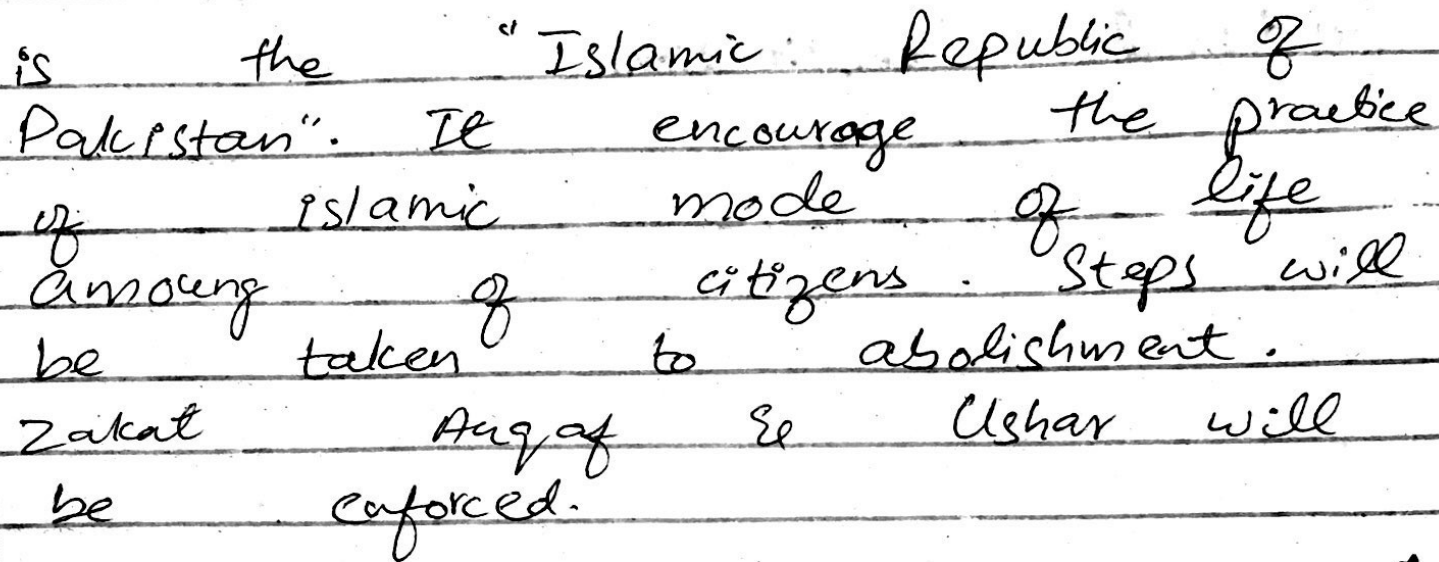 is the "Islamic Republic of
Pakistan". It encourage the practice
of islamic mode of life
amoung of citizens. Steps will
be taken to abolishment.
Zakat Auqaf & Ushar will
be enforced.